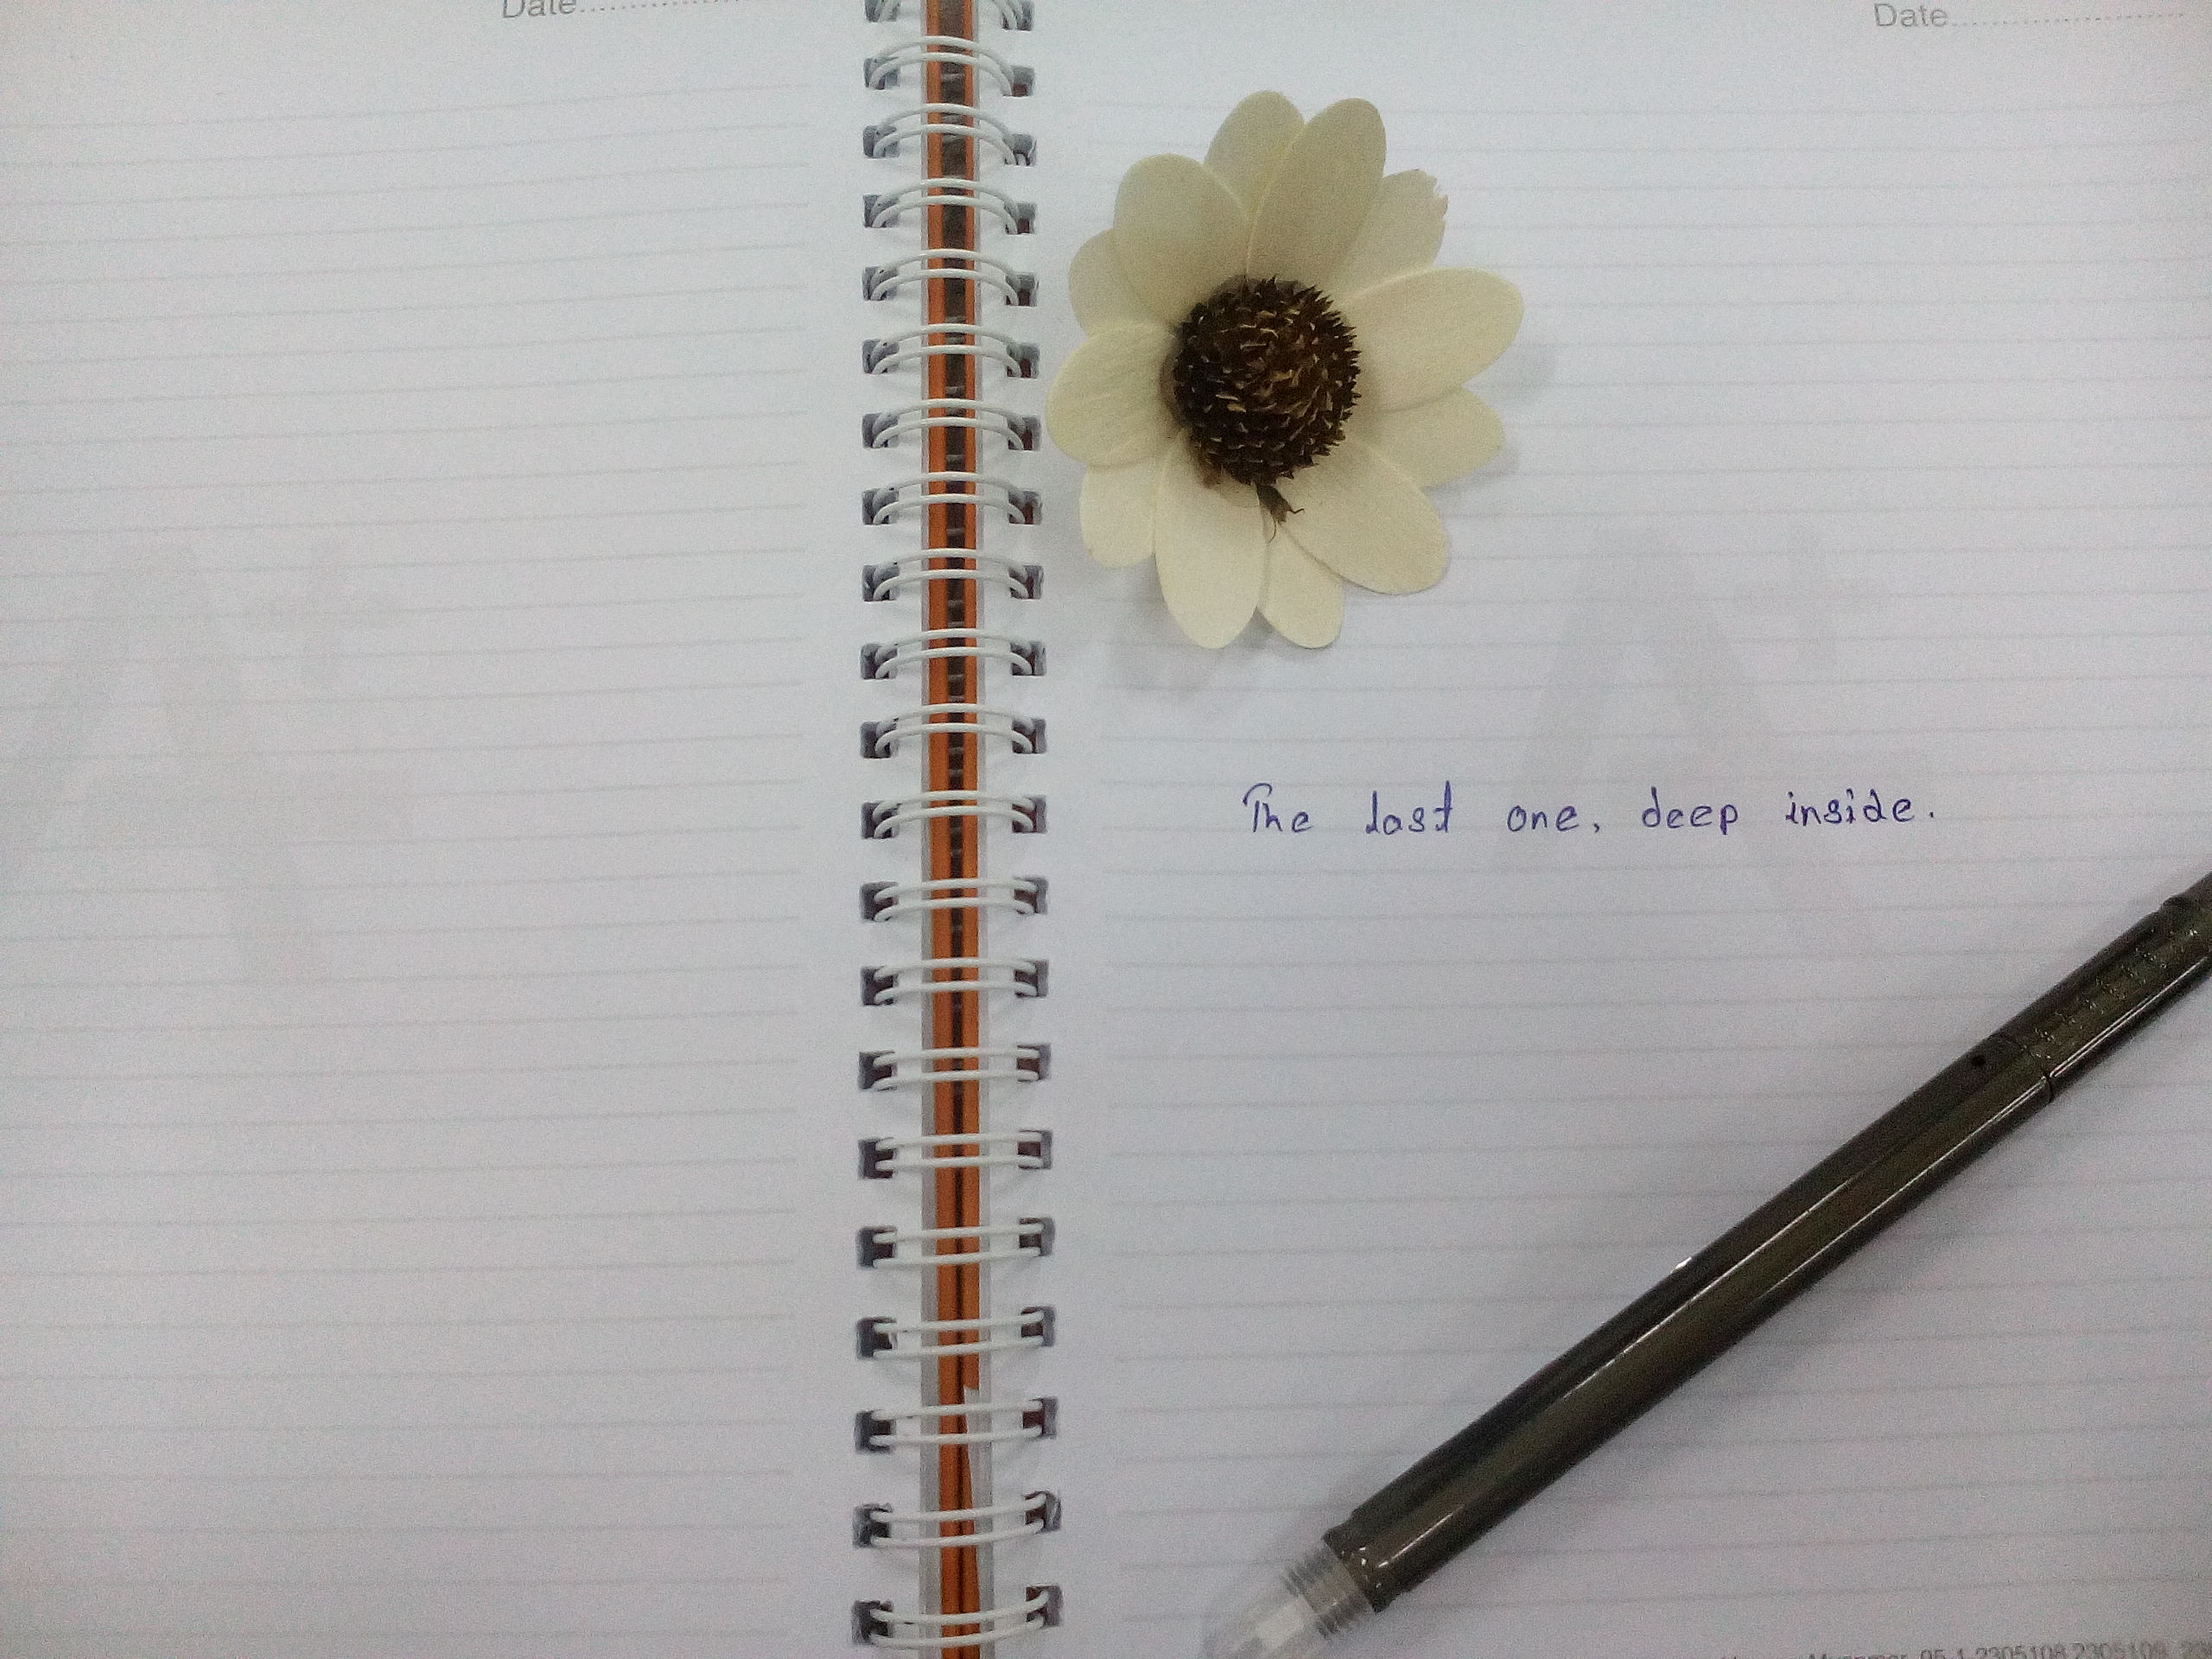 Date
Date
The last one, deep inside.
Myanmar. 95-1-2305108, 2305109,